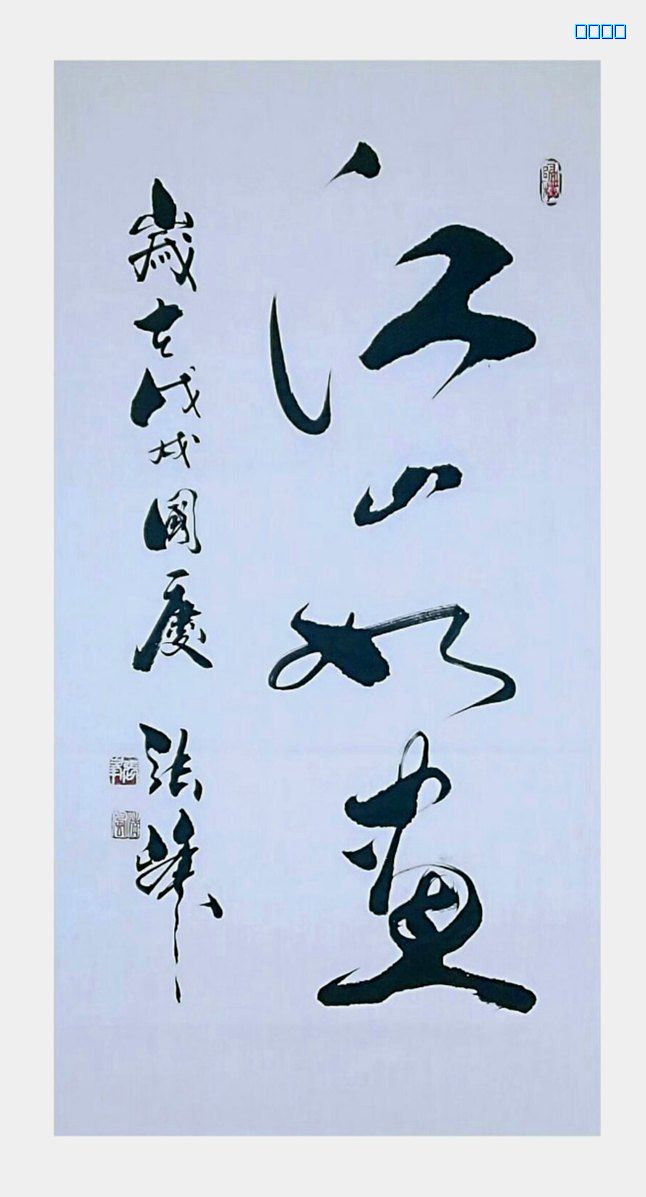 江山如画
歲在戊戌國慶
張峰